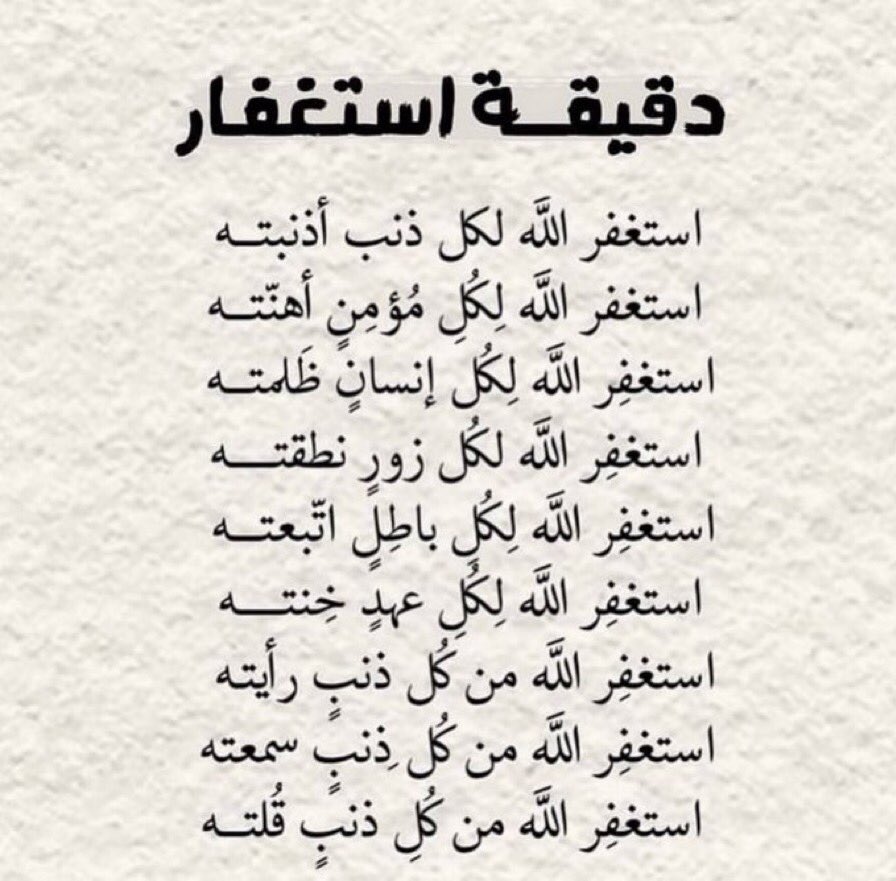 دقيقة استغفار
استغفر اللَّه لكل ذنب أذنبته
استغفر اللَّه لِكُلِ مُؤمِنٍ أهنّته
استغفِر اللَّه لِكُل إنسانٍ ظَلمته
استغفِر اللَّه لكُل زورٍ نطقته
استغفِر اللَّه لِكُلٍ باطِلٍ اتّبعته
استغفِر اللَّه لِكُلِ عهدٍ خِنته
استغفِر اللَّه من كُل ذنبٍ رأيته
استغفِر اللَّه من كُل ذِنبٍ سمعته
استغفِر اللَّه من كُلِ ذنبٍ قُلته